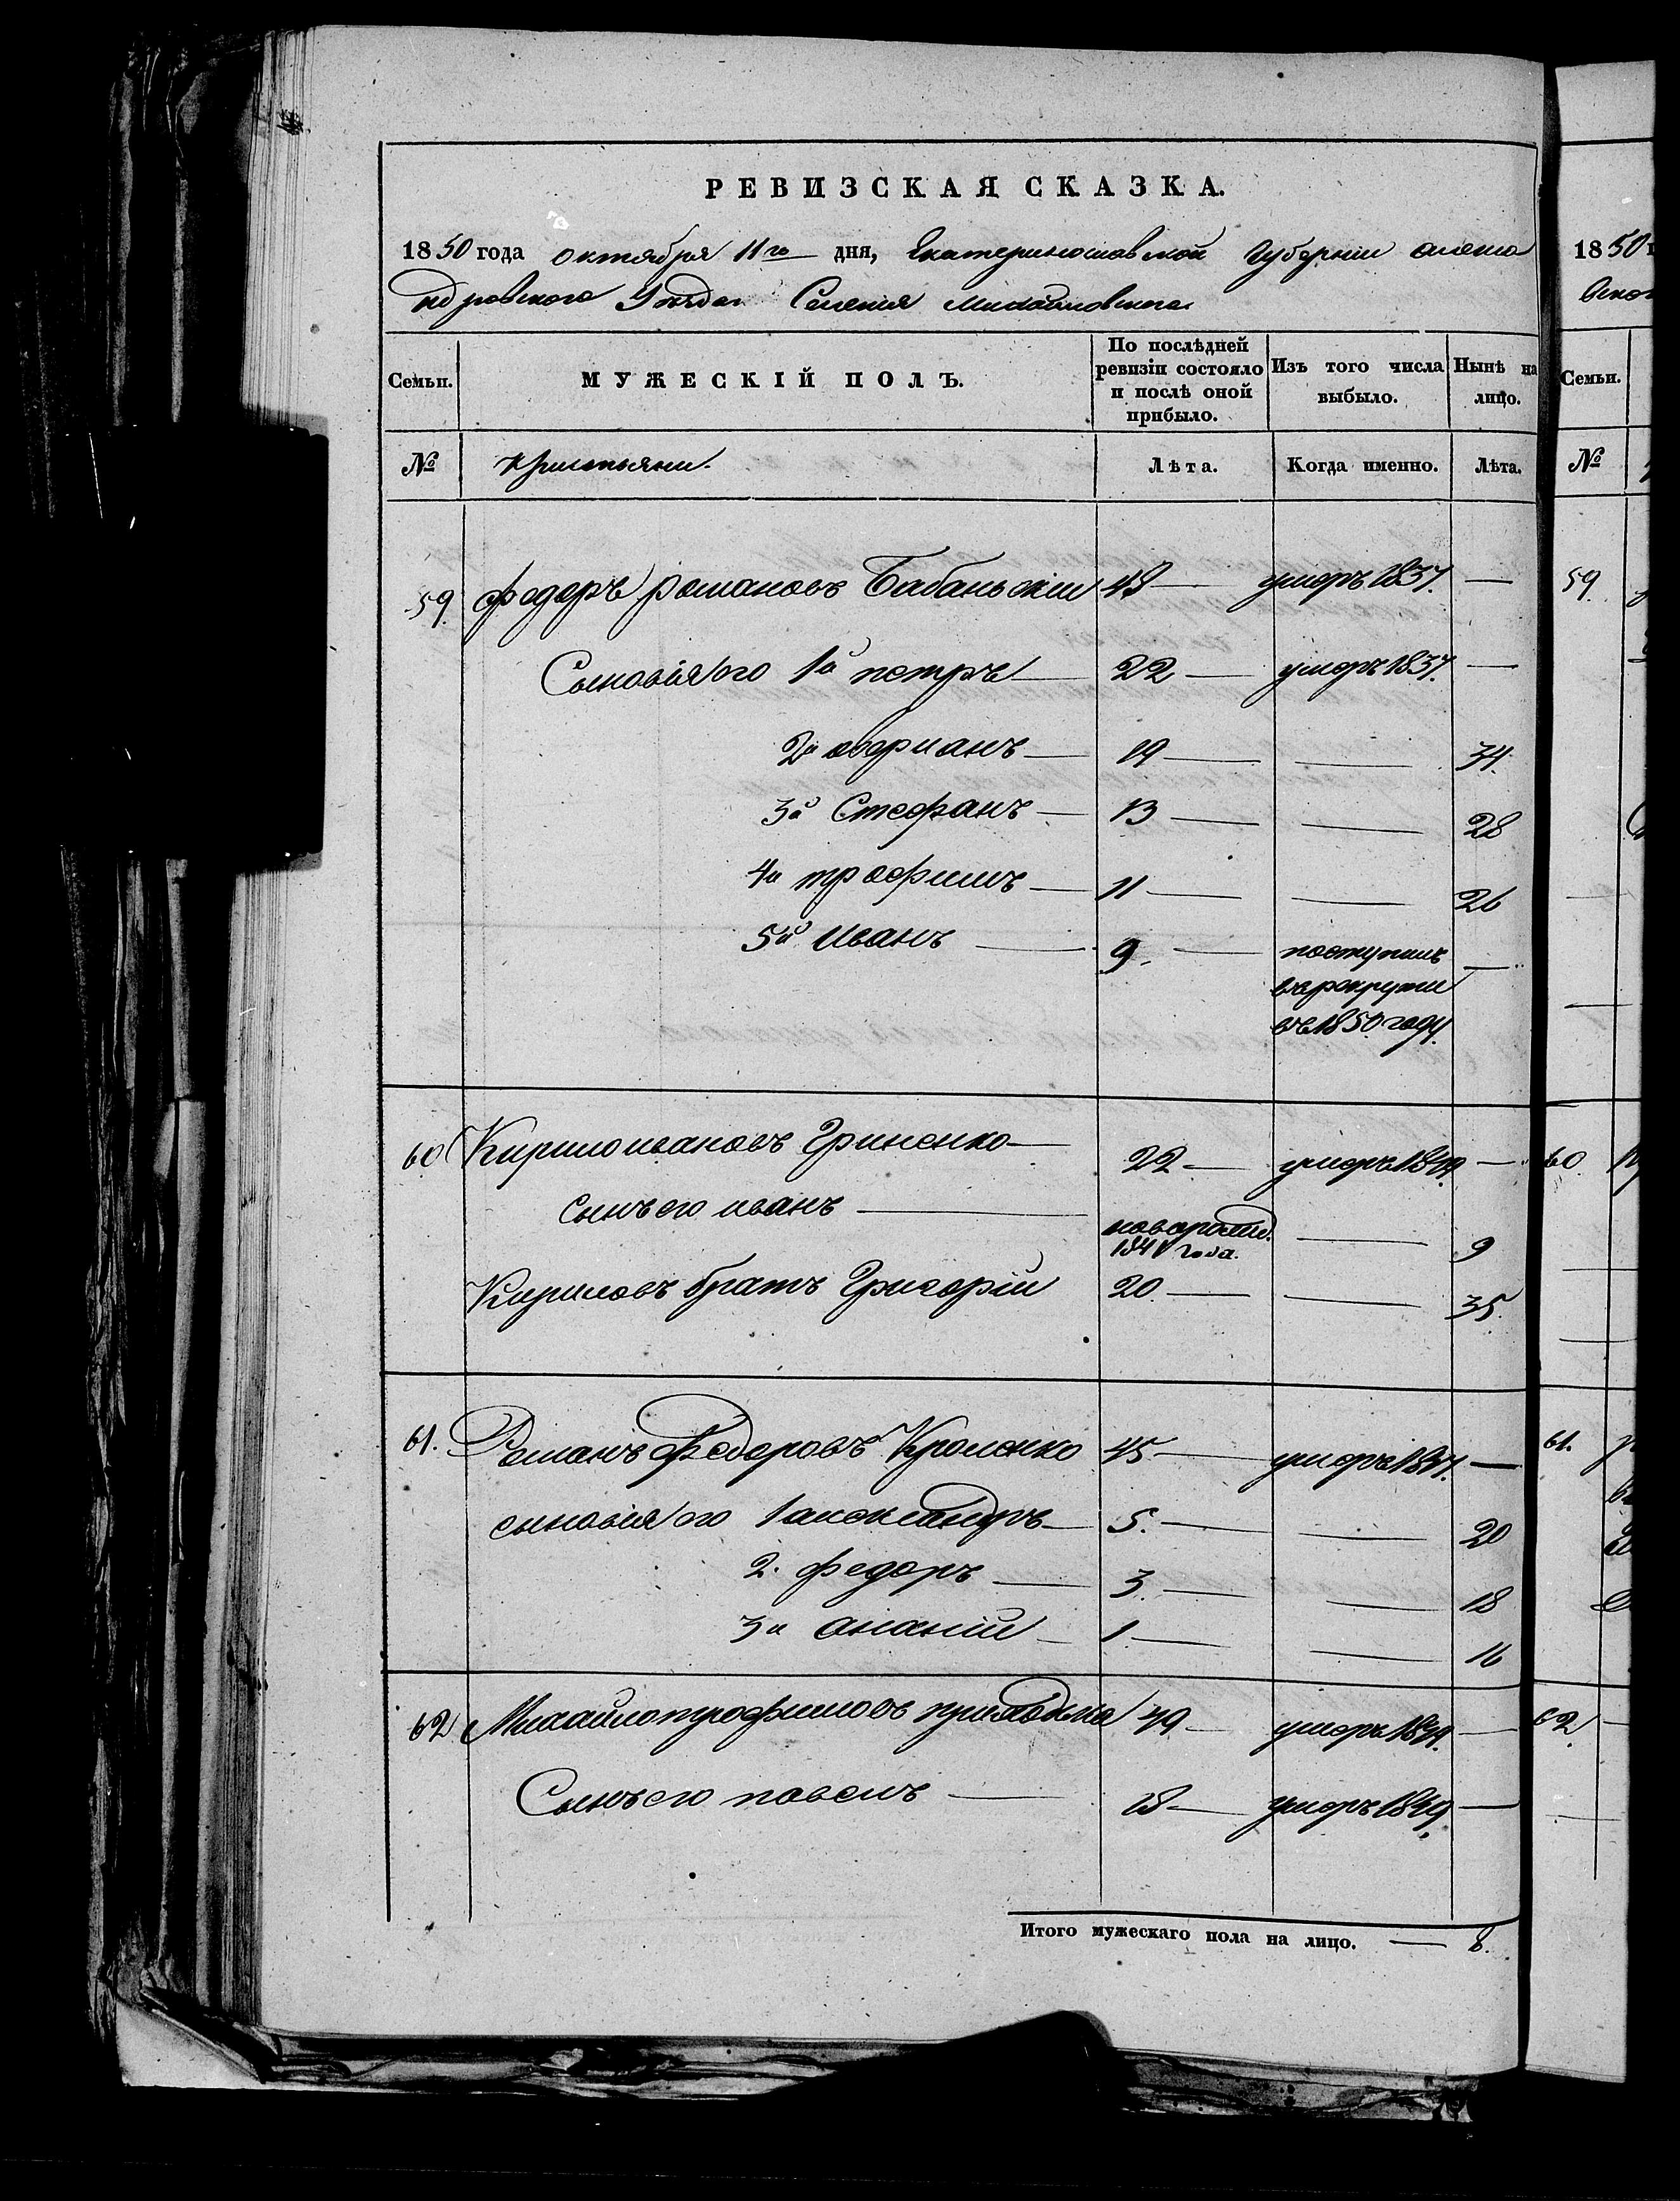 РЕВИЗСКАЯ СКАЗКА.
1850 года октября 11го дня, Екатеринославской Губернии Алекса
ндровского Уезда Селения Михайловского
Семьи. МУЖЕСКІЙ ПОЛЪ. По послѣдней ревизіи состояло и послѣ оной прибыло. Изъ того числа выбыло. Нынѣ на лицо.
№ Кристьяни. Лѣта. Когда именно. Лѣта.
59. Федоръ романовъ Бабаньский 48 — умеръ 1837. —
Сыновья его 1й петръ — 22 — умеръ 1837. —
2й аверианъ — 19 — — 34.
3й Стефанъ — 13 — — 28
4й трофимъ — 11 — — 26
5й Иванъ — 9. — поступилъ —
врекрути
въ 1850 году.
60 Кирило ивановъ Гриненко — 22 — умеръ —
сынъ его иванъ — новорожд. 184 года. — 9
Кириловъ братъ Григорий 20 — — 35.
61. Романъ Федоровъ Кроленко 45 — умеръ —
сыновья его 1 александръ — 5. — — 20
2. федоръ — 3. — — 18
3й ананий — 1. — — 16
62 Михайло трофимовъ 49 — умеръ —
Сынъ его павелъ — 18 — умеръ 1849. —
Итого мужескаго пола на лицо. — 8.
1850
Семьи.
№
59.
60.
61.
62.